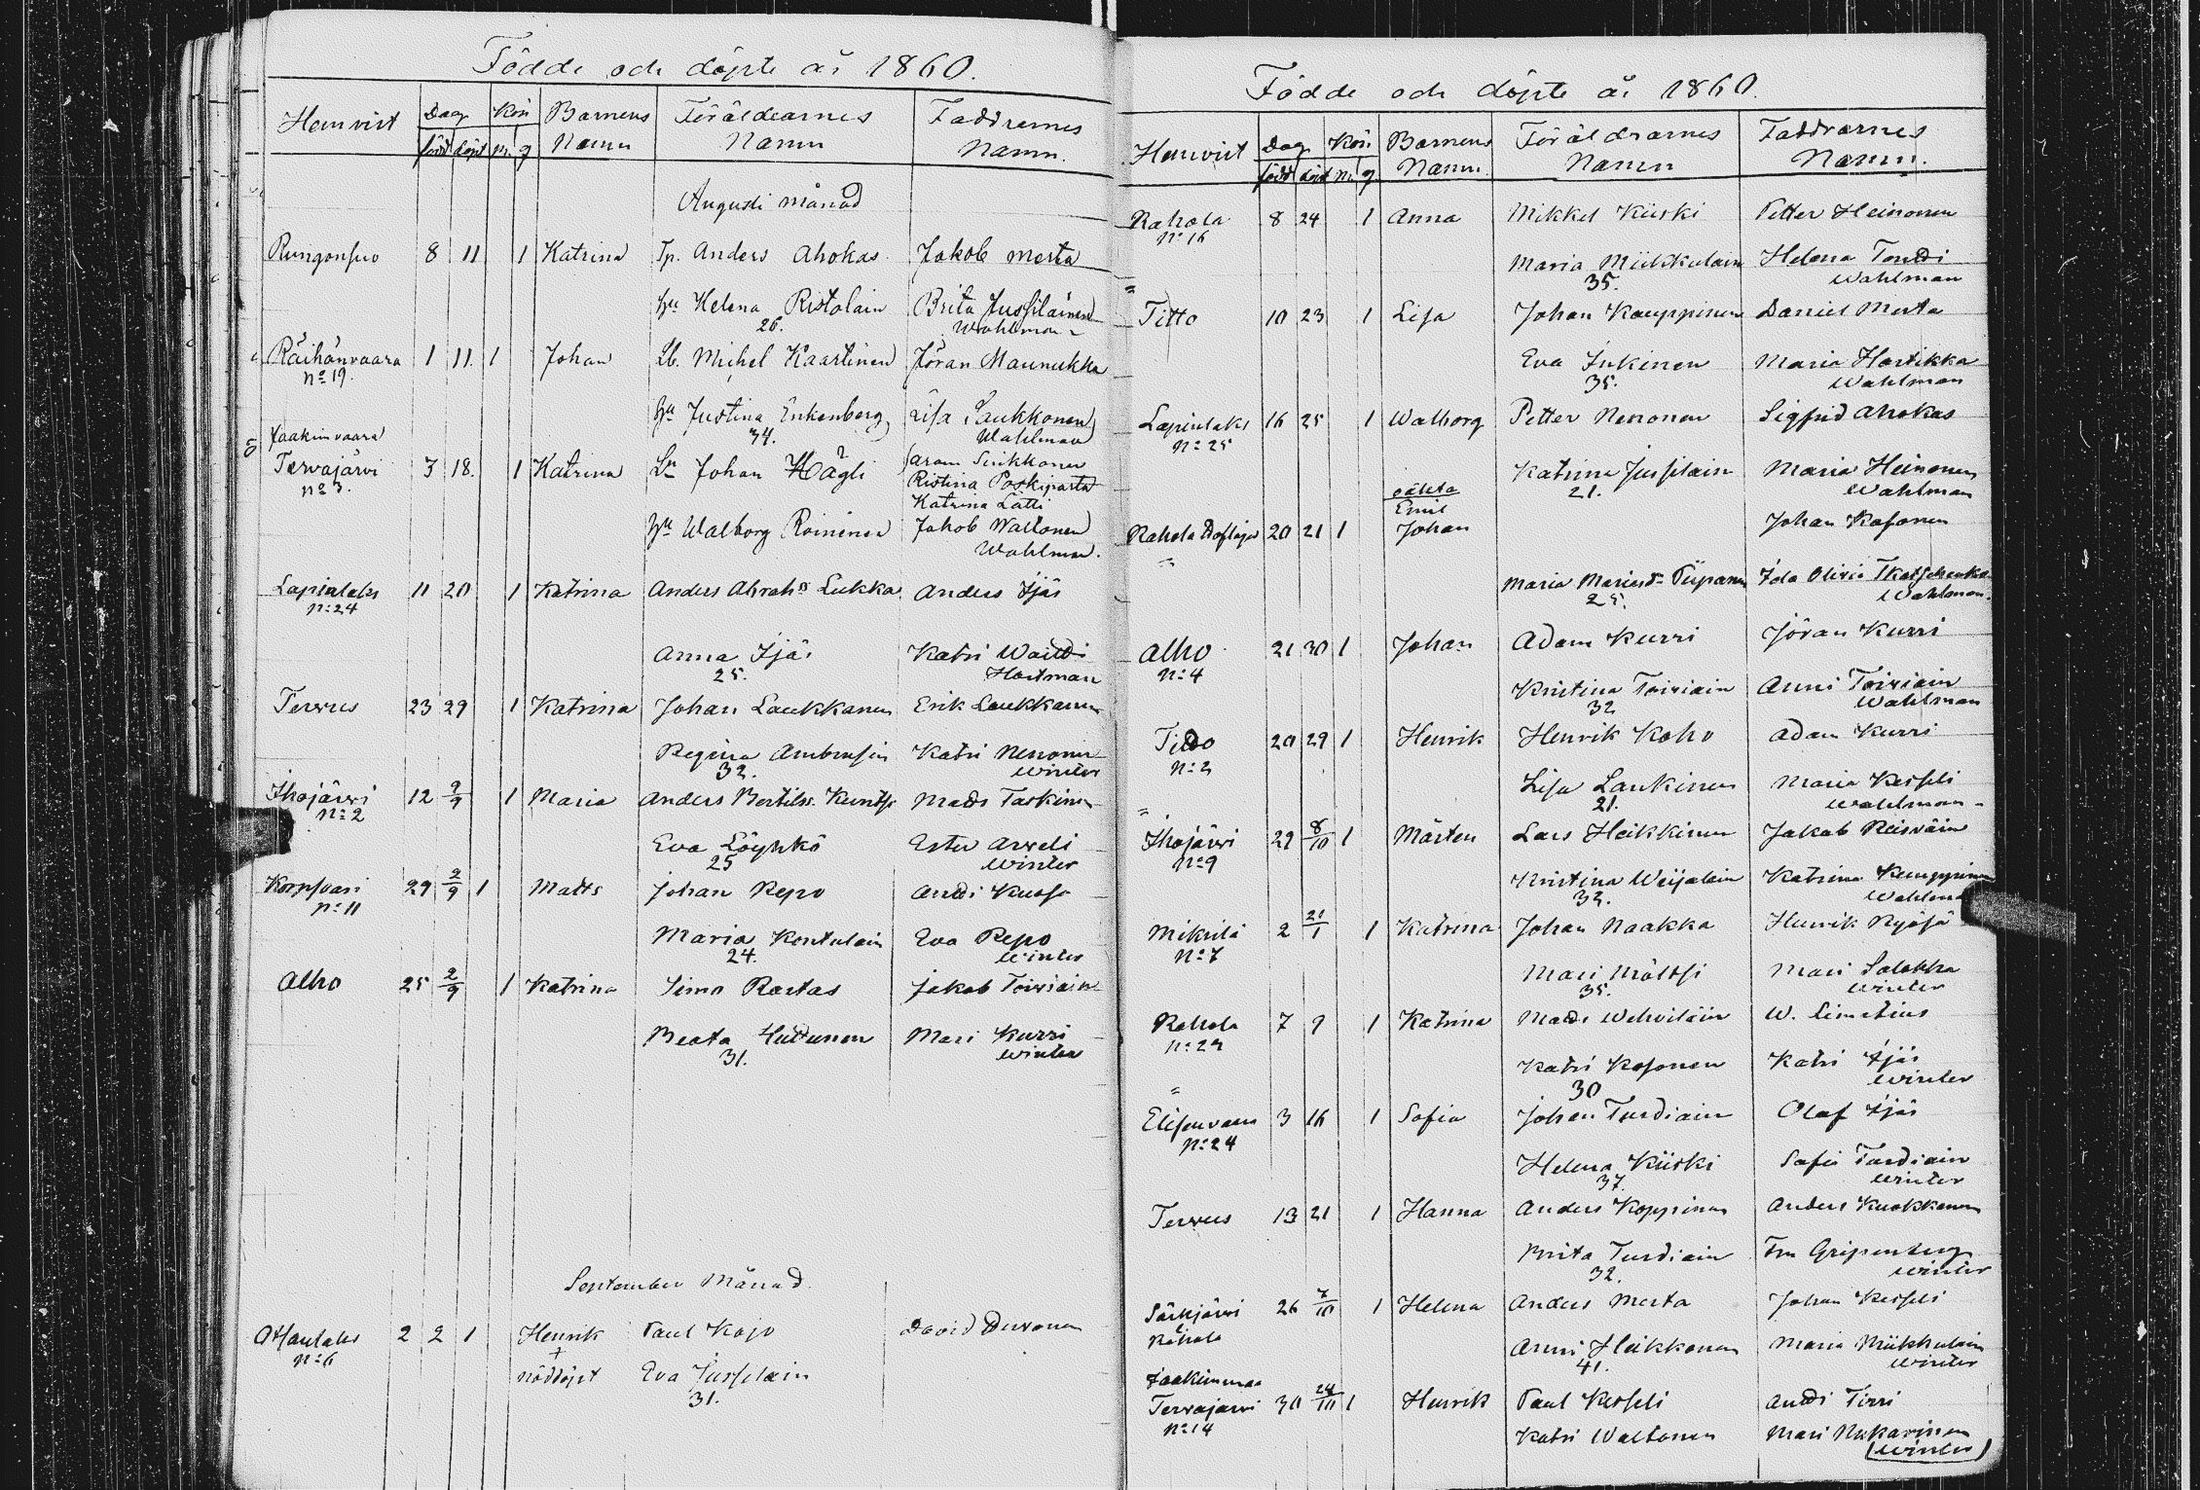 Födde och döpte år 1860.
Hemvist Dag Kön Barnens Föräldrarnes Faddrarnes
född döpt m. q Namn Namn Namn.
Augusti månad
8 11 1 Katrina Tp. Anders Ahokas Jakob Mesta
Hu Helena Ristolain Brita Jussilainen
26. Wahlman
Räihänvaara 1 11. 1 Johan Lb. Michel Kaartinen Jöran Maunukka
No 19.
Hu Justina Enkenberg Lisa Laukkonen
34. Wahlman
Jaakimvaara
Tervajärvi 3 18. 1 Katrina Johan Hägli
No 3. Ristina Poskiparta
Katrina Lätti
Hu Walborg Roininen Jakob Waltonen
Wahlman.
Lapinlaks 11 20 1 Katrina Anders Abrahs Lukka Anders Äjäs
No 24
Anna Äjäs Katri
25. Hartman
Terwus 23 29 1 Katrina Johan Laukkanen Erik Laukkanen
Regina Ambrusin Katri Nenonin
32. Winter
Ihojärwi 12 2/9 1 Maria Anders Bertilss. Matts Taskinen
No 2
Eva Löyhkö Ester
25 Winter
29 2/9 1 Matts Johan Repo Antti Kuosa
No 11
Maria Kontulain Eva Repo
24. Winter
Alho 25 2/9 1 Katrina Simo Rastas Jakob Toiviain
Beata Huttunen Mari Kurri
31. Winter
September Månad.
2 2 1 Henrik Paul Kojo David Duronen
No 6 +
nöddöpt Eva Jussilain
31.
Födde och döpte år 1860.
Hemvist Dag Kön Barnens Föräldrarnes Faddrarnes
född döpt m. q. Namn. Namn Namn.
Rahola 8 24 1 Anna Mikkel Kiiski Petter Heinonen
No 16
Maria Miikkulain Helena
35. Wahlman
Titto 10 23 1 Lisa Johan Kauppinen Daniel Mesta
Eva Inkinen Maria Hartikka
35. Wahlman
Lapinlaks 16 25 1 Walborg Petter Nenonen Sigfrid Ahokas
No 25
Katrina Jussilain Maria Heinonen
21. Wahlman
oäkta
Emil
Rahola 20 21 1 Johan Johan Kosonen
Maria Mariasdr Piipanen Ida Olivia
25. Wahlman.
Alho 21 30 1 Johan Adam Kurri Jöran Kurri
No 4
Kristina Toiviain Anni Toiviain
32 Wahlman
Titto 20 29 1 Henrik Henrik Koho Adam Kurri
No 2
Lisa Laukinen Maria Kesseli
21. Wahlman
Ihojärwi 29 8/10 1 Mårten Lars Heikkinen Jakob Reiswäin
No 9
Kristina Weijalain Katrina Kauppinen
32. Wahlman
Mikrilä 2 21/1 1 Katrina Johan Naakka Henrik
No 7
Mari Mältsi Mari Salokka
35. Winter
Rahola 7 9 1 Katrina Matts Wehviläin W. Simelius
Katri Kosonen Katri Äjäs
30 Winter
3 16 1 Sofia Johan Turdiain Olof Äjäs
No 24
Helena Kiiski Sofia Turdiain
37. Winter
Terwus 13 21 1 Hanna Anders Koppinen Anders Kuokkanen
Brita Turdiain Fru Gripenberg
32. Winter
Särkjärwi 26 7/10 1 Helena Anders Mesta Johan Kesseli
Rahola
Anni Heikkonen Maria Miikkulain
41. Winter
Jaakimvaa
Terwajärwi 30 24/10 1 Henrik Paul Kesseli Antti Tirri
No 14
Katri Waltonen Mari Mykarinen
Winter